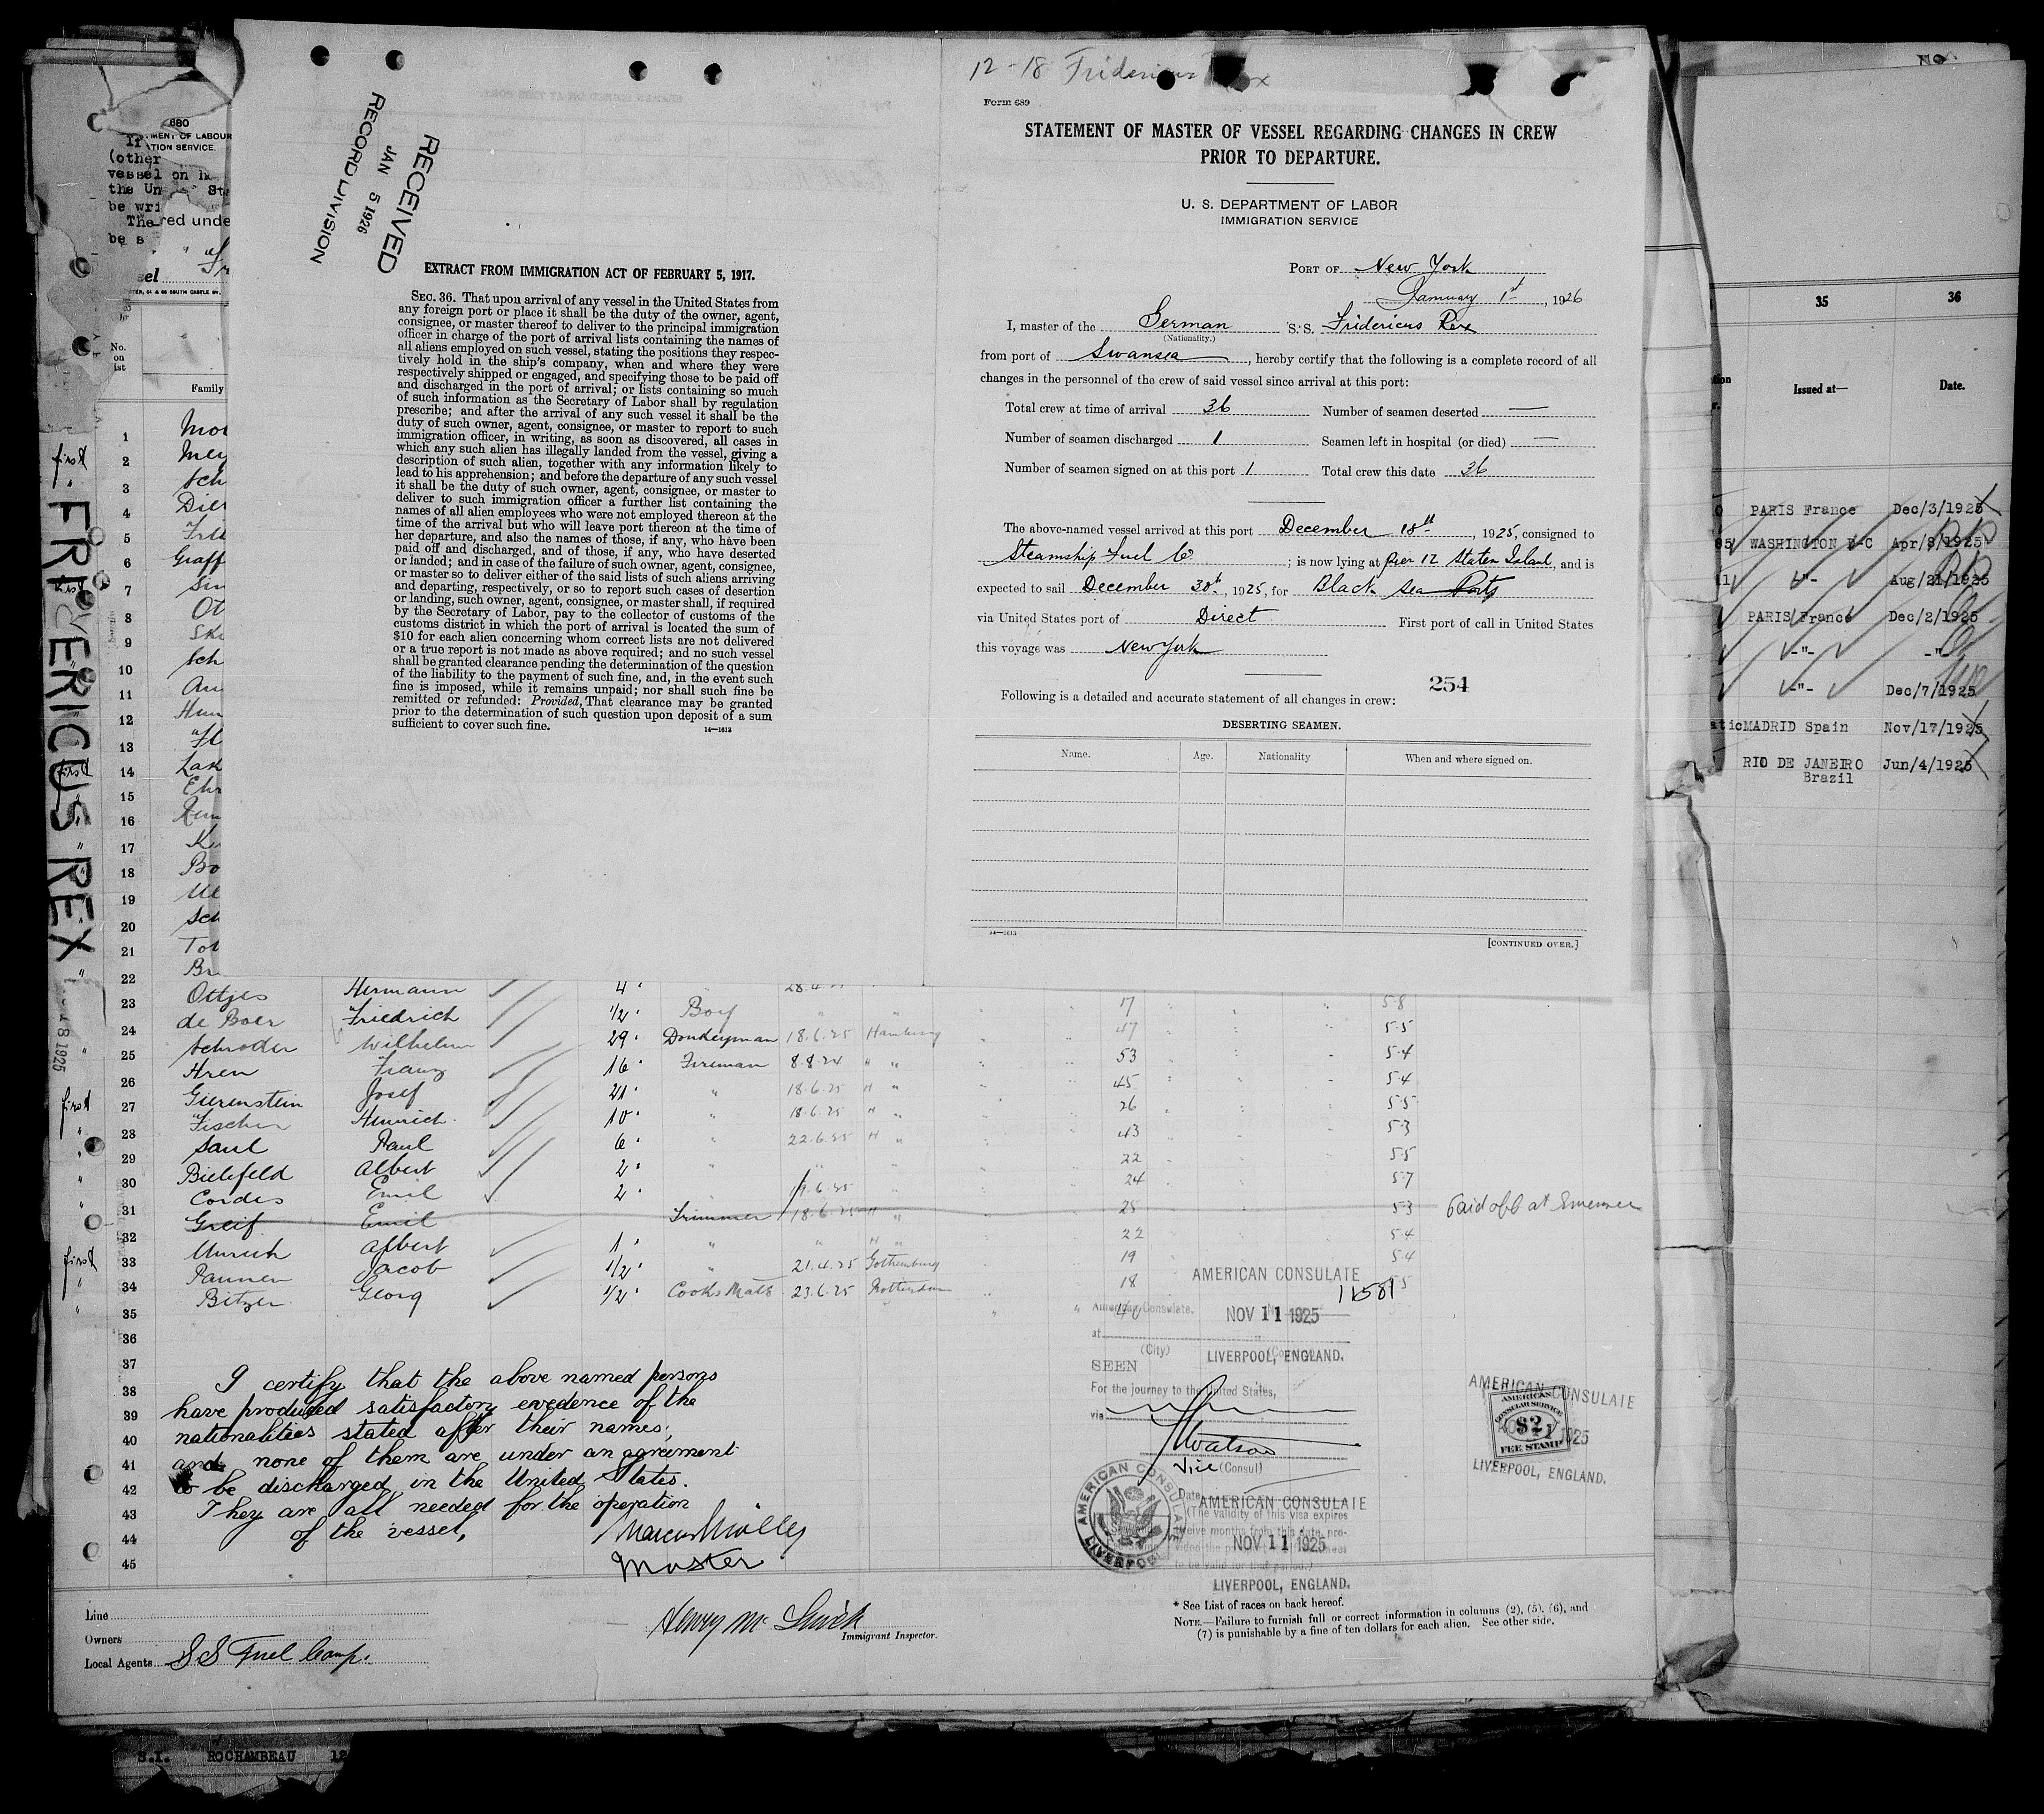 12-18 Fridericus Rex
Form 689
STATEMENT OF MASTER OF VESSEL REGARDING CHANGES IN CREW
PRIOR TO DEPARTURE.
U. S. DEPARTMENT OF LABOR
IMMIGRATION SERVICE
PORT OF New York
January 1st, 1926
I, master of the German S. S. Fridericus Rex
(Nationality.)
from port of Swansea, hereby certify that the following is a complete record of all
changes in the personnel of the crew of said vessel since arrival at this port:
Total crew at time of arrival 36 Number of seamen deserted —
Number of seamen discharged 1 Seamen left in hospital (or died) —
Number of seamen signed on at this port 1 Total crew this date 36
The above-named vessel arrived at this port December 18th, 1925, consigned to
Steamship Fuel Co ; is now lying at Pier 12 Staten Island, and is
expected to sail December 30th, 1925, for Black Sea Ports
via United States port of Direct First port of call in United States
this voyage was New York
254
Following is a detailed and accurate statement of all changes in crew:
DESERTING SEAMEN.
Name. Age. Nationality When and where signed on.
14—1613
[CONTINUED OVER.]
RECEIVED
JAN 5 1926
RECORD DIVISION
EXTRACT FROM IMMIGRATION ACT OF FEBRUARY 5, 1917.
SEC. 36. That upon arrival of any vessel in the United States from
any foreign port or place it shall be the duty of the owner, agent,
consignee, or master thereof to deliver to the principal immigration
officer in charge of the port of arrival lists containing the names of
all aliens employed on such vessel, stating the positions they respec-
tively hold in the ship's company, when and where they were
respectively shipped or engaged, and specifying those to be paid off
and discharged in the port of arrival; or lists containing so much
of such information as the Secretary of Labor shall by regulation
prescribe; and after the arrival of any such vessel it shall be the
duty of such owner, agent, consignee, or master to report to such
immigration officer, in writing, as soon as discovered, all cases in
which any such alien has illegally landed from the vessel, giving a
description of such alien, together with any information likely to
lead to his apprehension; and before the departure of any such vessel
it shall be the duty of such owner, agent, consignee, or master to
deliver to such immigration officer a further list containing the
names of all alien employees who were not employed thereon at the
time of the arrival but who will leave port thereon at the time of
her departure, and also the names of those, if any, who have been
paid off and discharged, and of those, if any, who have deserted
or landed; and in case of the failure of such owner, agent, consignee,
or master so to deliver either of the said lists of such aliens arriving
and departing, respectively, or so to report such cases of desertion
or landing, such owner, agent, consignee, or master shall, if required
by the Secretary of Labor, pay to the collector of customs of the
customs district in which the port of arrival is located the sum of
$10 for each alien concerning whom correct lists are not delivered
or a true report is not made as above required; and no such vessel
shall be granted clearance pending the determination of the question
of the liability to the payment of such fine, and, in the event such
fine is imposed, while it remains unpaid; nor shall such fine be
remitted or refunded: Provided, That clearance may be granted
prior to the determination of such question upon deposit of a sum
sufficient to cover such fine.
14—1613
680
FRIDERICUS REX
No.
on
Family
1
2
3
4
5
6
7
8
9
10
11
12
13
14
15
16
17
18
19
20
21
22
23
24
25
26
27
28
29
30
31
32
33
34
35
36
37
38
39
40
41
42
43
44
45
Ottjes Hermann 4"
de Boer Friedrich 1/2" Boy 17 58
Schröder Wilhelm 29" Donkeyman 18.6.25 Hamburg 47 55
Aren Franz 16" Fireman 8.8.24 " 53 54
Gierenstein Josef 21" " 18.6.25 " 45 54
Fischer Heinrich 10" " 18.6.25 " 26 55
Saul Paul 6" " 22.6.25 " 43 53
Bielefeld Albert 2" " " 22 55
Cordes Emil 2" " 19.6.25 24 57
Greif Emil Trimmer 18.6.25 " 25 53 Paid off at
Albert 1" " " " 22 54
Jacob 1/2" " 21.4.25 Gothenburg 19 54
Bitzer Georg 1/2" Cooks Mate 23.6.25 Rotterdam 18
I certify that the above named persons
have produced satisfactory evedence of the
nationalities stated after their names,
and none of them are under an agreement
to be discharged in the United States.
They are all needed for the operation
of the vessel,
Master
AMERICAN CONSULATE
11581
American Consulate.
NOV 11 1925
at
(City)
LIVERPOOL, ENGLAND.
SEEN
For the journey to the United States,
via
Watson
Vice (Consul)
Date
AMERICAN CONSULATE
(The validity of this visa expires
twelve months from this date, pro-
NOV 11 1925
LIVERPOOL, ENGLAND.
AMERICAN CONSULATE LIVERPOOL
AMERICAN CONSULATE
AMERICAN
CONSULAR SERVICE
$2
FEE STAMP
LIVERPOOL, ENGLAND.
* See List of races on back hereof.
NOTE.—Failure to furnish full or correct information in columns (2), (5), (6), and
(7) is punishable by a fine of ten dollars for each alien. See other side.
Line
Owners
Local Agents S S Fuel Comp.
Immigrant Inspector.
S.I. ROCHAMBEAU 12
35 36
Issued at— Date.
PARIS France Dec/3/1925
WASHINGTON D-C Apr/8/1925
-"- Aug/21/1925
PARIS France Dec/2/1925
-"- -"-
-"- Dec/7/1925
MADRID Spain Nov/17/1925
RIO DE JANEIRO Jun/4/1925
Brazil